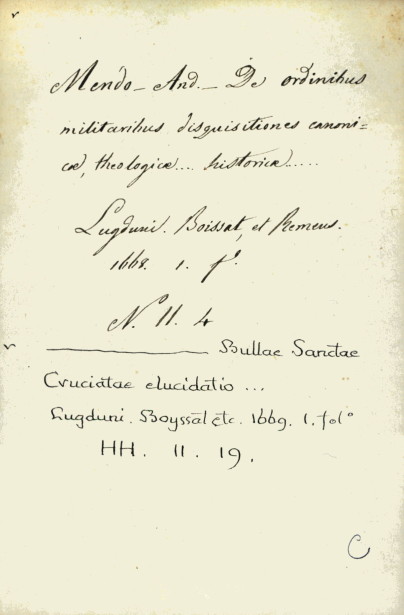 Mendo - And. - De ordinibus
militaribus disquisitiones canoni=
cæ, theologicæ.... historicæ.....
Lugduni. Boissat, et Remeus.
1668. 1. fº.
N. 11. 4
Bullae Sanctae
Cruciatae elucidatio ...
Lugduni. Boyssat etc. 1669. 1. folº
HH. 11. 19.
C